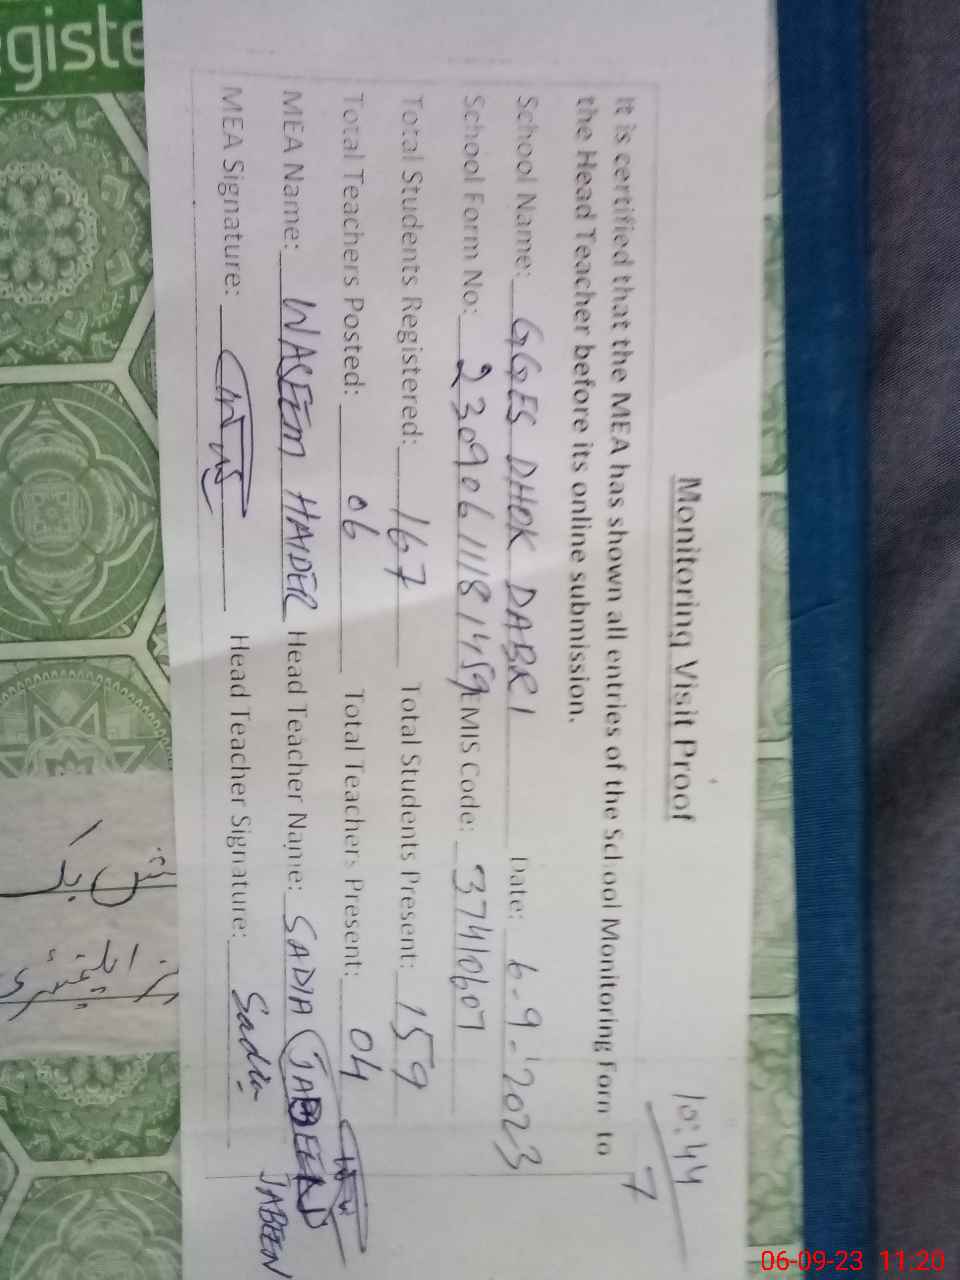 Monitoring Visit Proof
10:44
7
It is certified that the MEA has shown all entries of the School Monitoring Form to
the Head Teacher before its online submission.
School Name: GGES DHOK DABRI Date: 6-9-2023
School Form No: 23090611181459 EMIS Code: 37410607
Total Students Registered: 167 Total Students Present: 159
Total Teachers Posted: 06 Total Teachers Present: 04
MEA Name: WASEEM HAIDER Head Teacher Name: SADIA
JABEEN
MEA Signature: Head Teacher Signature: Sadia
giste
06-09-23 11:20